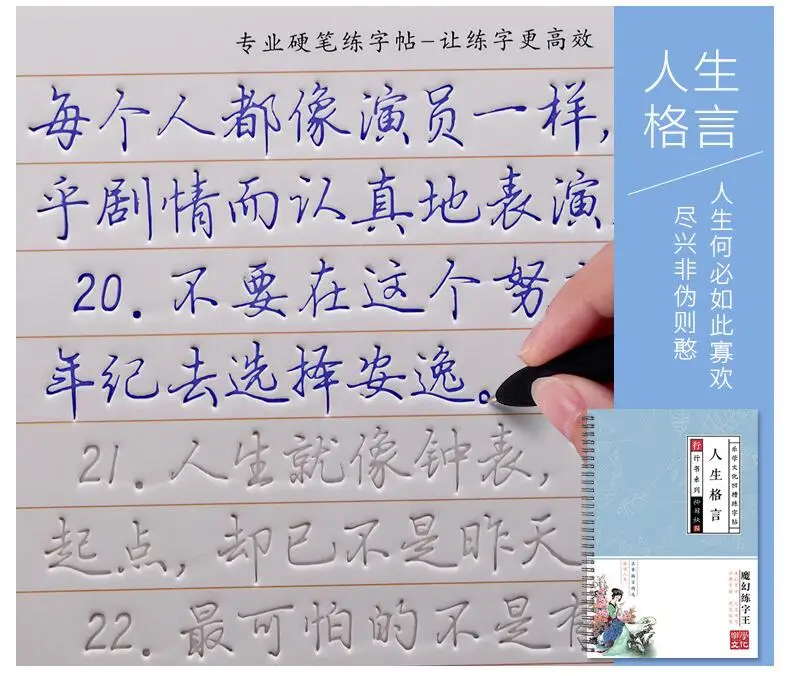 专业硬笔练字帖-让练字更高效
每个人都像演员一样，
乎剧情而认真地表演
20.不要在这个努
年纪去选择安逸。
21.人生就像钟表，
起点，却已不是昨天
22.最可怕的不是
人生
格言
人生何必如此寡欢
尽兴非伪则憨
乐学文化凹槽练字帖
人生格言
行
行书系列
魔幻练字王